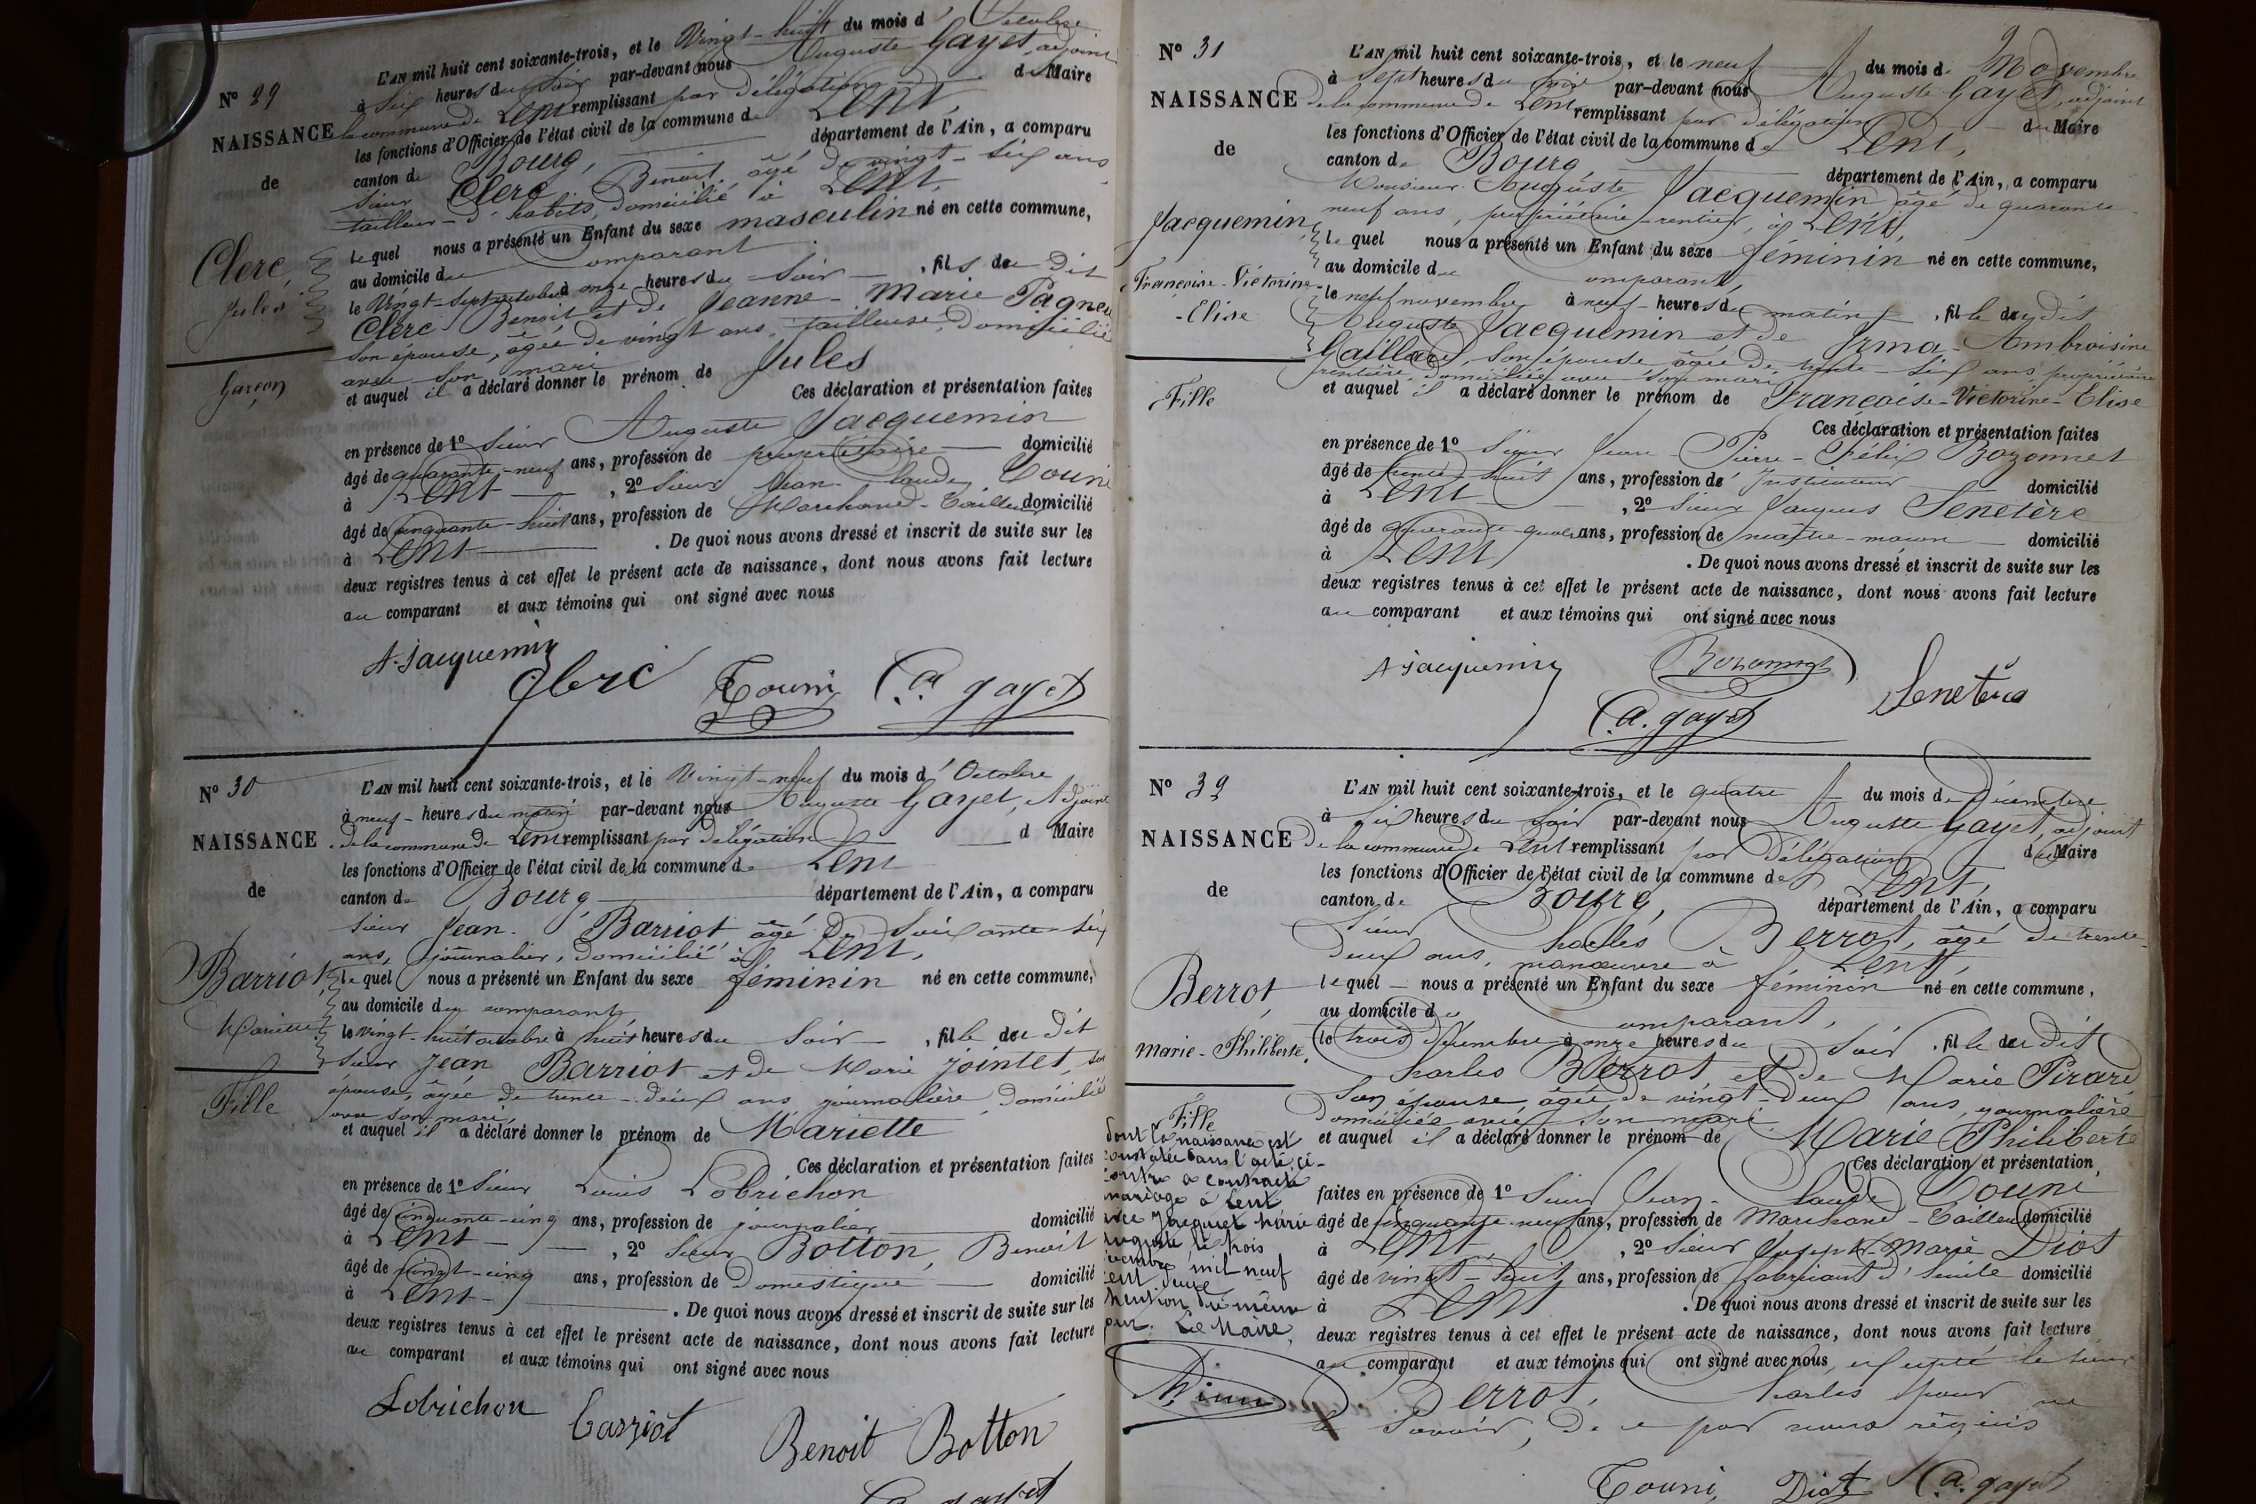 N° 29
NAISSANCE
de
Clerc,
Jules
Garçon
L'AN mil huit cent soixante-trois, et le Vingt-huit du mois d'Octobre
à six heures du soir par-devant nous Auguste Gayet, adjoint
de la commune de Lent remplissant par délégation du Maire
les fonctions d'Officier de l'état civil de la commune de Lent,
canton de Bourg, département de l'Ain, a comparu
Sieur Clerc Benoit, âgé de vingt-six ans,
tailleur d'habits, domicilié à Lent,
lequel nous a présenté un Enfant du sexe masculin né en cette commune,
au domicile du comparant
le Vingt-sept octobre à onze heures du soir, fils du dit
Clerc Benoit et de Jeanne-Marie Pagneu
son épouse, âgée de vingt ans, tailleuse, domiciliée
avec son mari
et auquel il a déclaré donner le prénom de Jules
Ces déclaration et présentation faites
en présence de 1° Sieur Auguste Jacquemin
âgé de quarante-neuf ans, profession de propriétaire domicilié
à Lent, 2° Sieur Jean Claude Touni
âgé de cinquante-huit ans, profession de Marchand-Tailleur domicilié
à Lent. De quoi nous avons dressé et inscrit de suite sur les
deux registres tenus à cet effet le présent acte de naissance, dont nous avons fait lecture
au comparant et aux témoins qui ont signé avec nous
A. Jacquemin
Clerc Touni C. A. gayet
N° 30
NAISSANCE
de
Barriot
Mariette
Fille
L'AN mil huit cent soixante-trois, et le Vingt-neuf du mois d'Octobre
à neuf heures du matin par-devant nous Auguste Gayet, Adjoint
de la commune de Lent remplissant par délégation d Maire
les fonctions d'Officier de l'état civil de la commune de Lent
canton de Bourg département de l'Ain, a comparu
Sieur Jean Barriot âgé de soixante-six
ans, journalier, domicilié à Lent,
lequel nous a présenté un Enfant du sexe féminin né en cette commune,
au domicile du comparant,
le vingt-huit octobre à huit heures du soir, fille du dit
Sieur Jean Barriot et de Marie Jointet, son
épouse, âgée de trente-deux ans journalière, domiciliée
avec son mari,
et auquel il a déclaré donner le prénom de Mariette
Ces déclaration et présentation faites
en présence de 1° Sieur Louis Lobrichon
âgé de cinquante-cinq ans, profession de journalier domicilié
à Lent, 2° Sieur Botton, Benoit
âgé de vingt-cinq ans, profession de domestique domicilié
à Lent. De quoi nous avons dressé et inscrit de suite sur les
deux registres tenus à cet effet le présent acte de naissance, dont nous avons fait lecture
au comparant et aux témoins qui ont signé avec nous
Lobrichon barriot Benoit Botton
C. A. gayet
N° 31
NAISSANCE
de
Jacquemin,
Françoise-Victorine
-Elise
Fille
L'AN mil huit cent soixante-trois, et le neuf du mois de Novembre
à sept heures du soir par-devant nous Auguste Gayet, adjoint
de la commune de Lent remplissant par délégation du Maire
les fonctions d'Officier de l'état civil de la commune de Lent,
canton de Bourg département de l'Ain, a comparu
Monsieur Auguste Jacquemin âgé de quarante-
neuf ans, propriétaire-rentier, à Lent,
lequel nous a présenté un Enfant du sexe féminin né en cette commune,
au domicile du comparant,
le neuf novembre à neuf heures du matin, fille du dit
Auguste Jacquemin et de Irma-Ambroisine
Gaillard, son épouse âgée de trente-six ans propriétaire
rentière domiciliée avec son mari
et auquel il a déclaré donner le prénom de Françoise-Victorine-Elise
Ces déclaration et présentation faites
en présence de 1° Sieur Jean-Pierre-Félix Bozonnet
âgé de trente-huit ans, profession de Instituteur domicilié
à Lent, 2° Sieur Jacques Senetère
âgé de quarante-quatre ans, profession de maître-maçon domicilié
à Lent. De quoi nous avons dressé et inscrit de suite sur les
deux registres tenus à cet effet le présent acte de naissance, dont nous avons fait lecture
au comparant et aux témoins qui ont signé avec nous
A. Jacquemin Bozonnet
C. A. gayet Senetère
N° 32
NAISSANCE
de
Berrot,
Marie-Philiberte.
Fille
dont la naissance est
constatée dans l'acte ci-
contre a contracté
mariage à Lent
avec Jacquet Marie
Auguste le trois
mil neuf
cent deux
Mention du même
jour. Le Maire,
L'AN mil huit cent soixante-trois, et le quatre du mois de Décembre
à six heures du soir par-devant nous Auguste Gayet, adjoint
de la commune de Lent remplissant par délégation du Maire
les fonctions d'Officier de l'état civil de la commune de Lent,
canton de Bourg, département de l'Ain, a comparu
Sieur Charles Berrot, âgé de trente-
deux ans, manœuvre à Lent,
lequel nous a présenté un Enfant du sexe féminin né en cette commune,
au domicile du comparant,
le trois Décembre à onze heures du soir, fille du dit
Charles Berrot et de Marie Pirard
son épouse âgée de vingt-deux ans, journalière
domiciliée avec son mari.
et auquel il a déclaré donner le prénom de Marie Philiberte
Ces déclaration et présentation,
faites en présence de 1° Sieur Jean-Claude Touni
âgé de cinquante-neuf ans, profession de Marchand-Tailleur domicilié
à Lent, 2° Sieur Joseph-Marie Diot
âgé de vingt-huit ans, profession de fabricant d'huile domicilié
à Lent. De quoi nous avons dressé et inscrit de suite sur les
deux registres tenus à cet effet le présent acte de naissance, dont nous avons fait lecture
au comparant et aux témoins qui ont signé avec nous, excepté le sieur
Berrot, Charles pour ne
le savoir, de ce par nous requis
Touni, Diot C. A. gayet